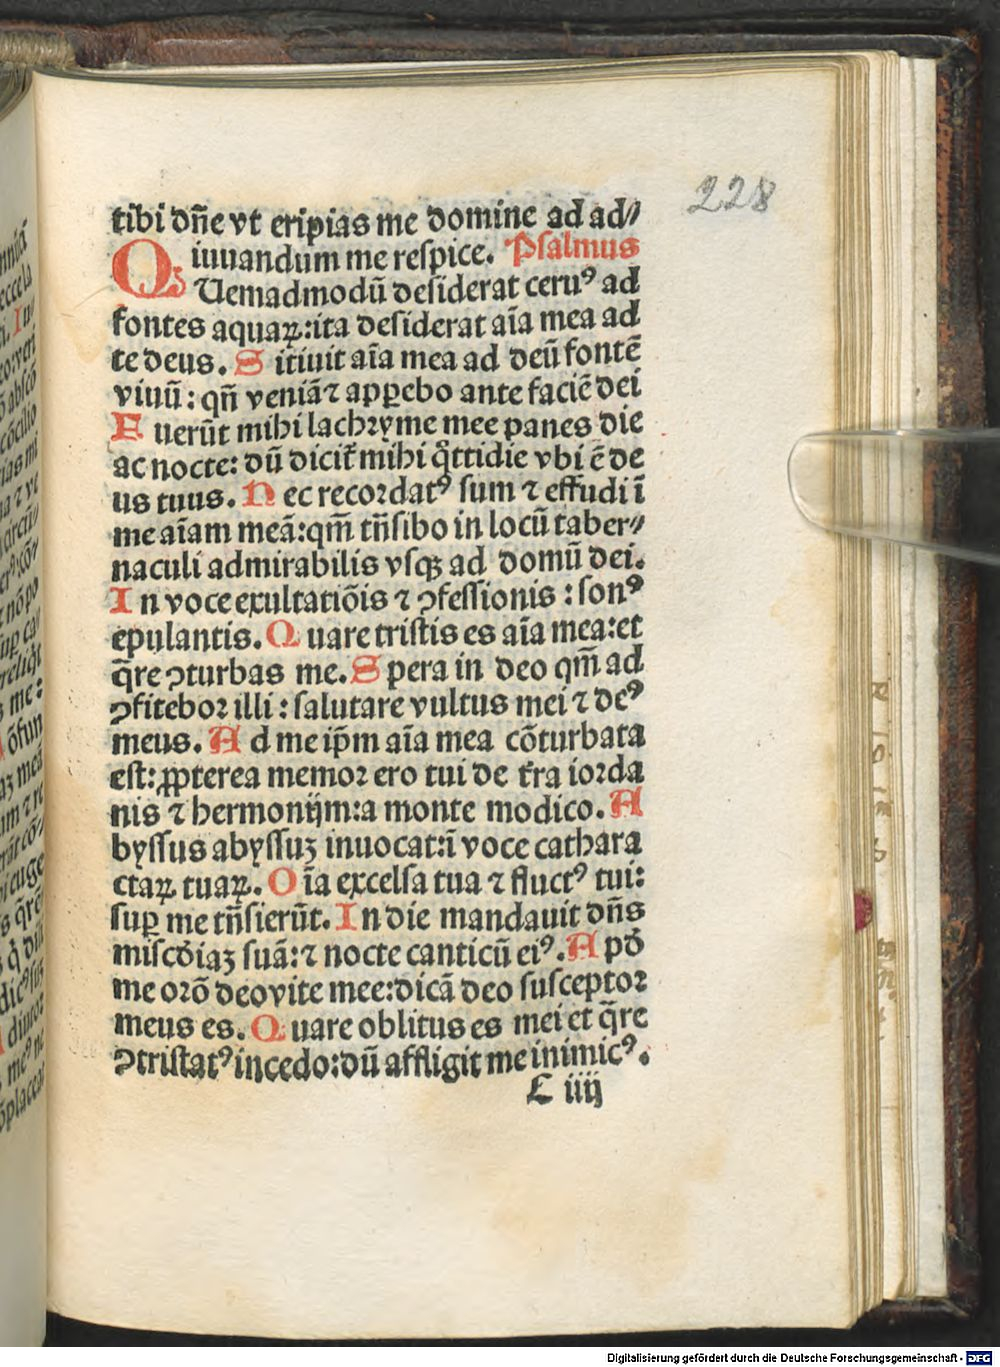 228
tibi dñe vt eripias me domine ad ad⸗
iuuandum me respice. Psalmus
QUemadmodū desiderat ceruꝰ ad
fontes aquaꝝ:ita desiderat aīa mea ad
te deus. Sitiuit aīa mea ad deū fontē
viuū: qñ veniā ⁊ apꝑebo ante faciē dei
Fuerūt mihi lachryme mee panes die
ac nocte: dū dicit̄ mihi q̊ttidie vbi ē de
us tuus. Nec recordatꝰ sum ⁊ effudi ī
me aīam meā:qm̄ trāsibo in locū taber⸗
naculi admirabilis vsqꝫ ad domū dei.
In voce exultatiōis ⁊ ꝯfessionis : sonꝰ
epulantis. Quare tristis es aīa mea:et
q̄re ꝯturbas me. Spera in deo qm̄ ad
ꝯfitebor illi : salutare vultus mei ⁊ deꝰ
meus. Ad me ip̄m aīa mea cōturbata
est: ꝓpterea memor ero tui de t̄ra iorda
nis ⁊ hermonijm:a monte modico. A
byssus abyssuꝫ inuocat:ī voce cathara
ctaꝝ tuaꝝ. Oīa excelsa tua ⁊ fluctꝰ tui:
suꝑ me trāsierūt. In die mandauit dn̄s
miscd̄iaꝫ suā: ⁊ nocte canticū eiꝰ. Apd̄
me orō deo vite mee:dicā deo susceptor
meus es. Quare oblitus es mei et q̄re
ꝯtristatꝰ incedo:dū affligit me inimicꝰ.
L iiij
Digitalisierung gefördert durch die Deutsche Forschungsgemeinschaft - DFG